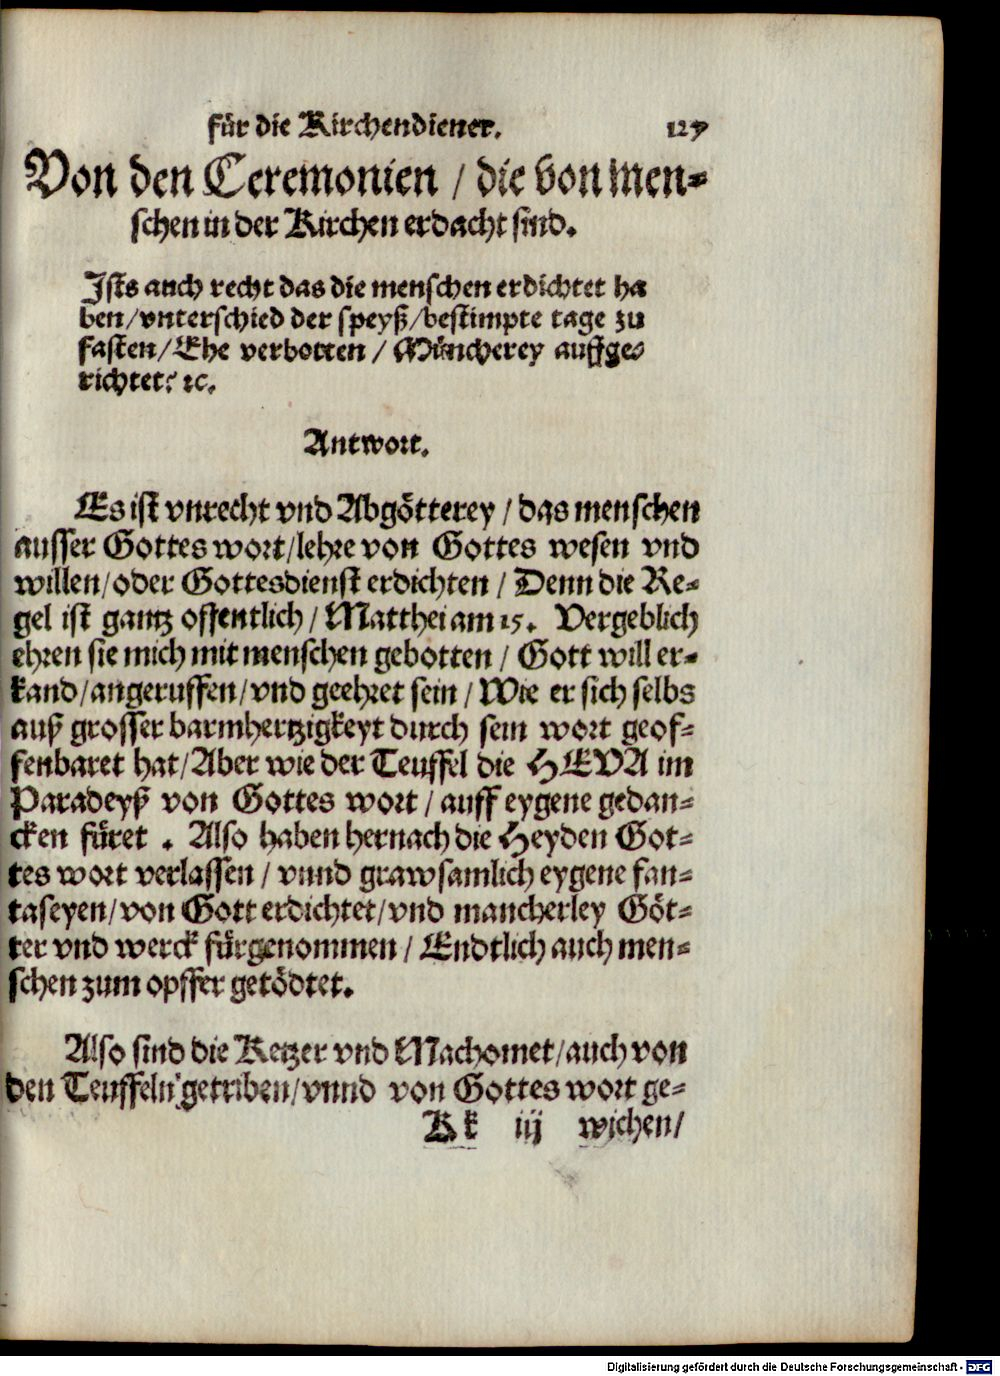 für die Kirchendiener. 127
Von den Ceremonien / die von men-
schen in der Kirchen erdacht sind.
Ists auch recht das die menschen erdichtet ha
ben/vnterschied der speyß/bestimpte tage zu
fasten/Ehe verbotten / Müncherey auffge-
richtet? ꝛc.
Antwort.
Es ist vnrecht vnd Abgötterey / das menschen
ausser Gottes wort/lehre von Gottes wesen vnd
willen/oder Gottesdienst erdichten / Denn die Re-
gel ist gantz offentlich / Matthei am 15. Vergeblich
ehren sie mich mit menschen gebotten / Gott will er-
kand/angeruffen/vnd geehret sein / Wie er sich selbs
auß grosser barmhertzigkeyt durch sein wort geof-
fenbaret hat/Aber wie der Teuffel die HEVA im
Paradeyß von Gottes wort / auff eygene gedan-
cken füret . Also haben hernach die Heyden Got-
tes wort verlassen / vnnd grawsamlich eygene fan-
taseyen/von Gott erdichtet/vnd mancherley Göt-
ter vnd werck fürgenommen / Endtlich auch men-
schen zum opffer getödtet.
Also sind die Ketzer vnd Machomet/auch von
den Teuffeln getriben/vnnd von Gottes wort ge-
Kk iij wichen/
Digitalisierung gefördert durch die Deutsche Forschungsgemeinschaft - DFG